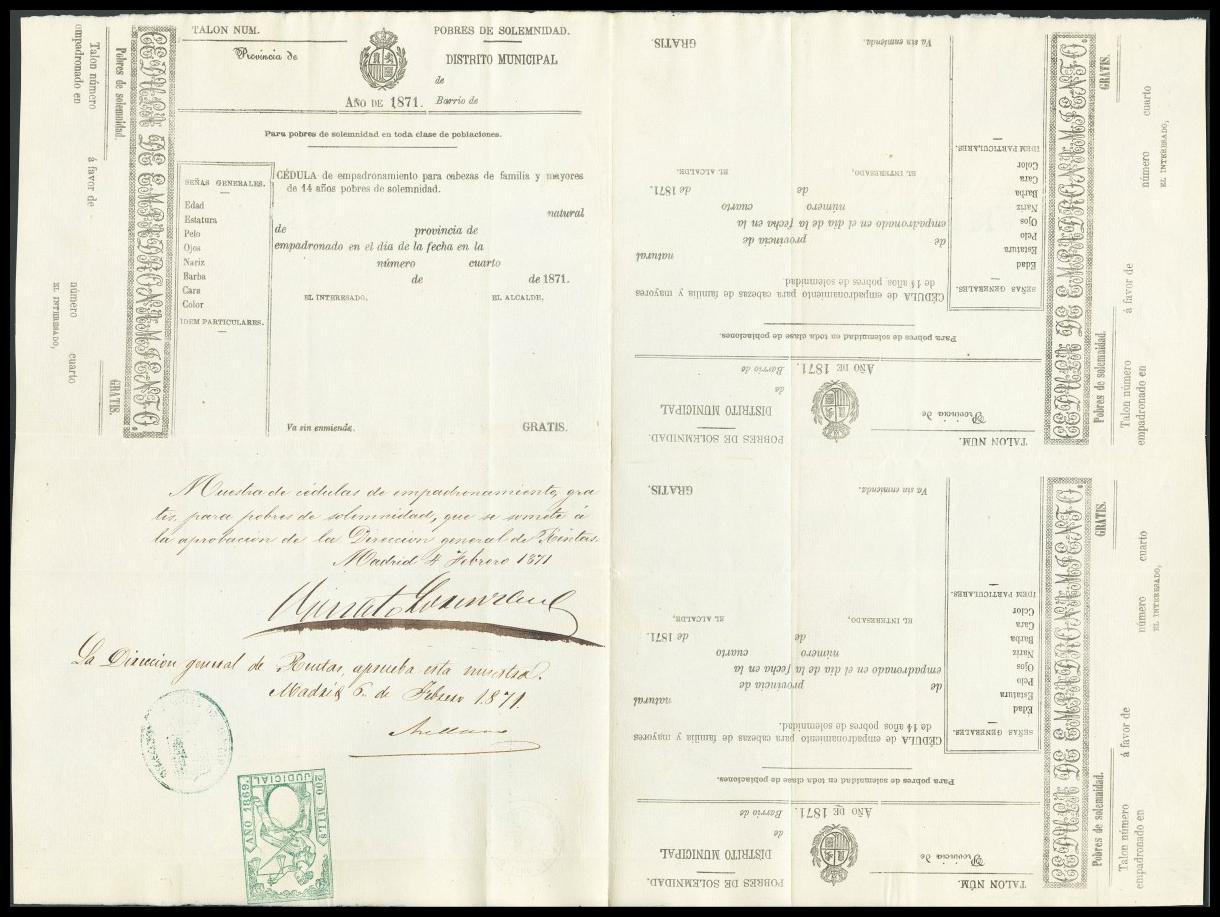 TALON NUM.
POBRES DE SOLEMNIDAD.
Provincia de
DISTRITO MUNICIPAL
de
AÑO DE 1871.
Barrio de
Para pobres de solemnidad en toda clase de poblaciones.
SEÑAS GENERALES.
Edad
Estatura
Pelo
Ojos
Nariz
Barba
Cara
Color
IDEM PARTICULARES.
CÉDULA de empadronamiento para cabezas de familia y mayores
de 14 años pobres de solemnidad.
natural
de provincia de
empadronado en el dia de la fecha en la
número cuarto
de de 1871.
EL INTERESADO, EL ALCALDE,
Va sin enmienda. GRATIS.
CEDULA DE EMPADRONAMIENTO.
Pobres de solemnidad. GRATIS.
Talon número á favor de
empadronado en número cuarto
EL INTERESADO,
Muestra de cédulas de empadronamiento, gra
tis, para pobres de solemnidad, que se somete á
la aprobacion de la Direccion general de Rentas.
Madrid 4 Febrero 1871
La Direccion general de Rentas, aprueba esta muestra.
Madrid 6 de Febrero 1871.
Arellano
200 MILS
JUDICIAL
AÑO 1869.
TALON NUM.
POBRES DE SOLEMNIDAD.
Provincia de
DISTRITO MUNICIPAL
de
AÑO DE 1871.
Barrio de
Para pobres de solemnidad en toda clase de poblaciones.
SEÑAS GENERALES.
Edad
Estatura
Pelo
Ojos
Nariz
Barba
Cara
Color
IDEM PARTICULARES.
CÉDULA de empadronamiento para cabezas de familia y mayores
de 14 años pobres de solemnidad.
natural
de provincia de
empadronado en el dia de la fecha en la
número cuarto
de de 1871.
EL INTERESADO, EL ALCALDE,
Va sin enmienda. GRATIS.
CEDULA DE EMPADRONAMIENTO.
Pobres de solemnidad. GRATIS.
Talon número á favor de
empadronado en número cuarto
EL INTERESADO,
TALON NUM.
POBRES DE SOLEMNIDAD.
Provincia de
DISTRITO MUNICIPAL
de
AÑO DE 1871.
Barrio de
Para pobres de solemnidad en toda clase de poblaciones.
SEÑAS GENERALES.
Edad
Estatura
Pelo
Ojos
Nariz
Barba
Cara
Color
IDEM PARTICULARES.
CÉDULA de empadronamiento para cabezas de familia y mayores
de 14 años pobres de solemnidad.
natural
de provincia de
empadronado en el dia de la fecha en la
número cuarto
de de 1871.
EL INTERESADO, EL ALCALDE,
Va sin enmienda. GRATIS.
CEDULA DE EMPADRONAMIENTO.
Pobres de solemnidad. GRATIS.
Talon número á favor de
empadronado en número cuarto
EL INTERESADO,